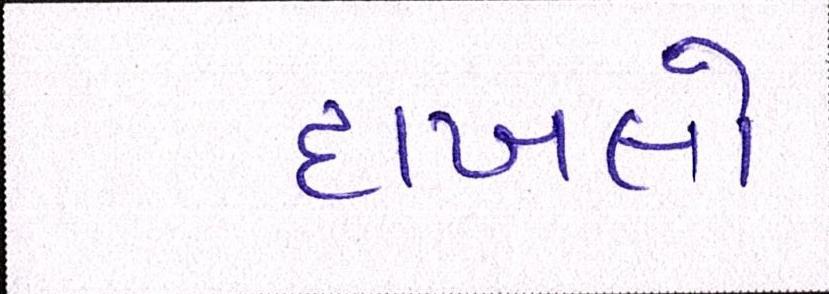 દાખલો